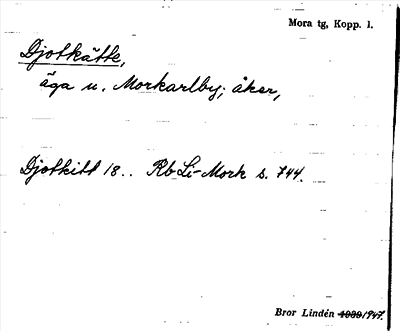 Mora tg, Kopp. 1.
Djotkätte,
äga u. Morkarlby; åker,
Djotkitt 18.. Rb Li-Mork s. 744.
Bror Lindén 1939/947.